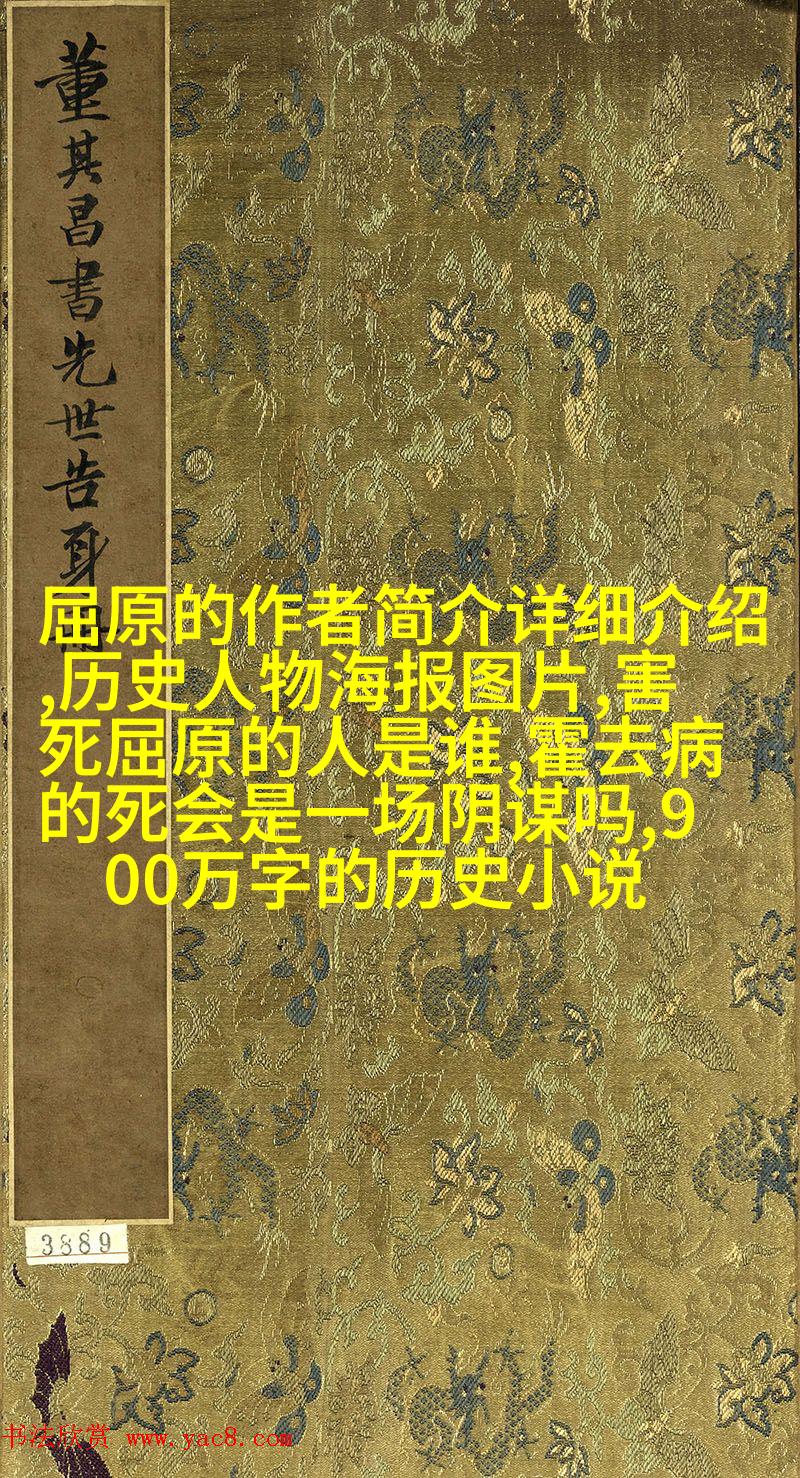 董其昌书先世告身册
屈原的作者简介详细介绍
,历史人物海报图片,害
死屈原的人是谁,霍去病
的死会是一场阴谋吗,9
00万字的历史小说
3889
书法欣赏 www.yac8.com